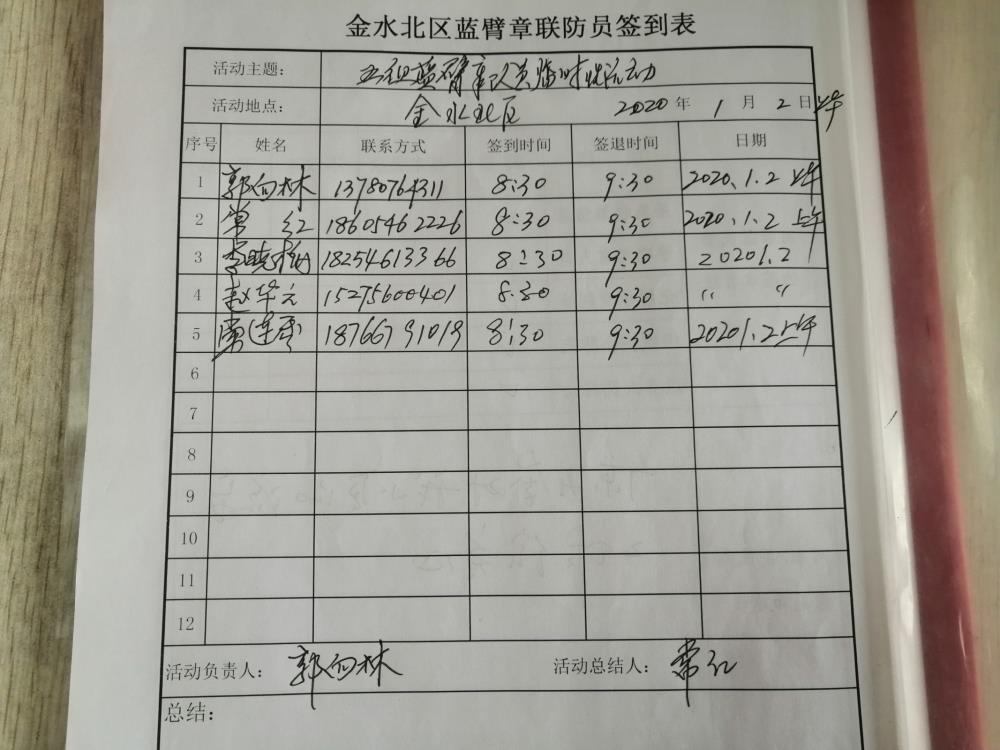 金水北区蓝臂章联防员签到表
活动主题: 五组蓝臂章队员临时性活动
活动地点: 金水北区 2020 年 1 月 2 日 上午
序号 姓名 联系方式 签到时间 签退时间 日期
1 郭向林 13780764311 8:30 9:30 2020.1.2 上午
2 常红 18605462226 8:30 9:30 2020.1.2 上午
3 李晓梅 18254613366 8:30 9:30 20201.2
4 赵华云 15275600401 8:30 9:30 〃 〃
5 常连香 18766791019 8:30 9:30 20201.2上午
6
7
8
9
10
11
12
活动负责人: 郭向林 活动总结人: 常红
总结: